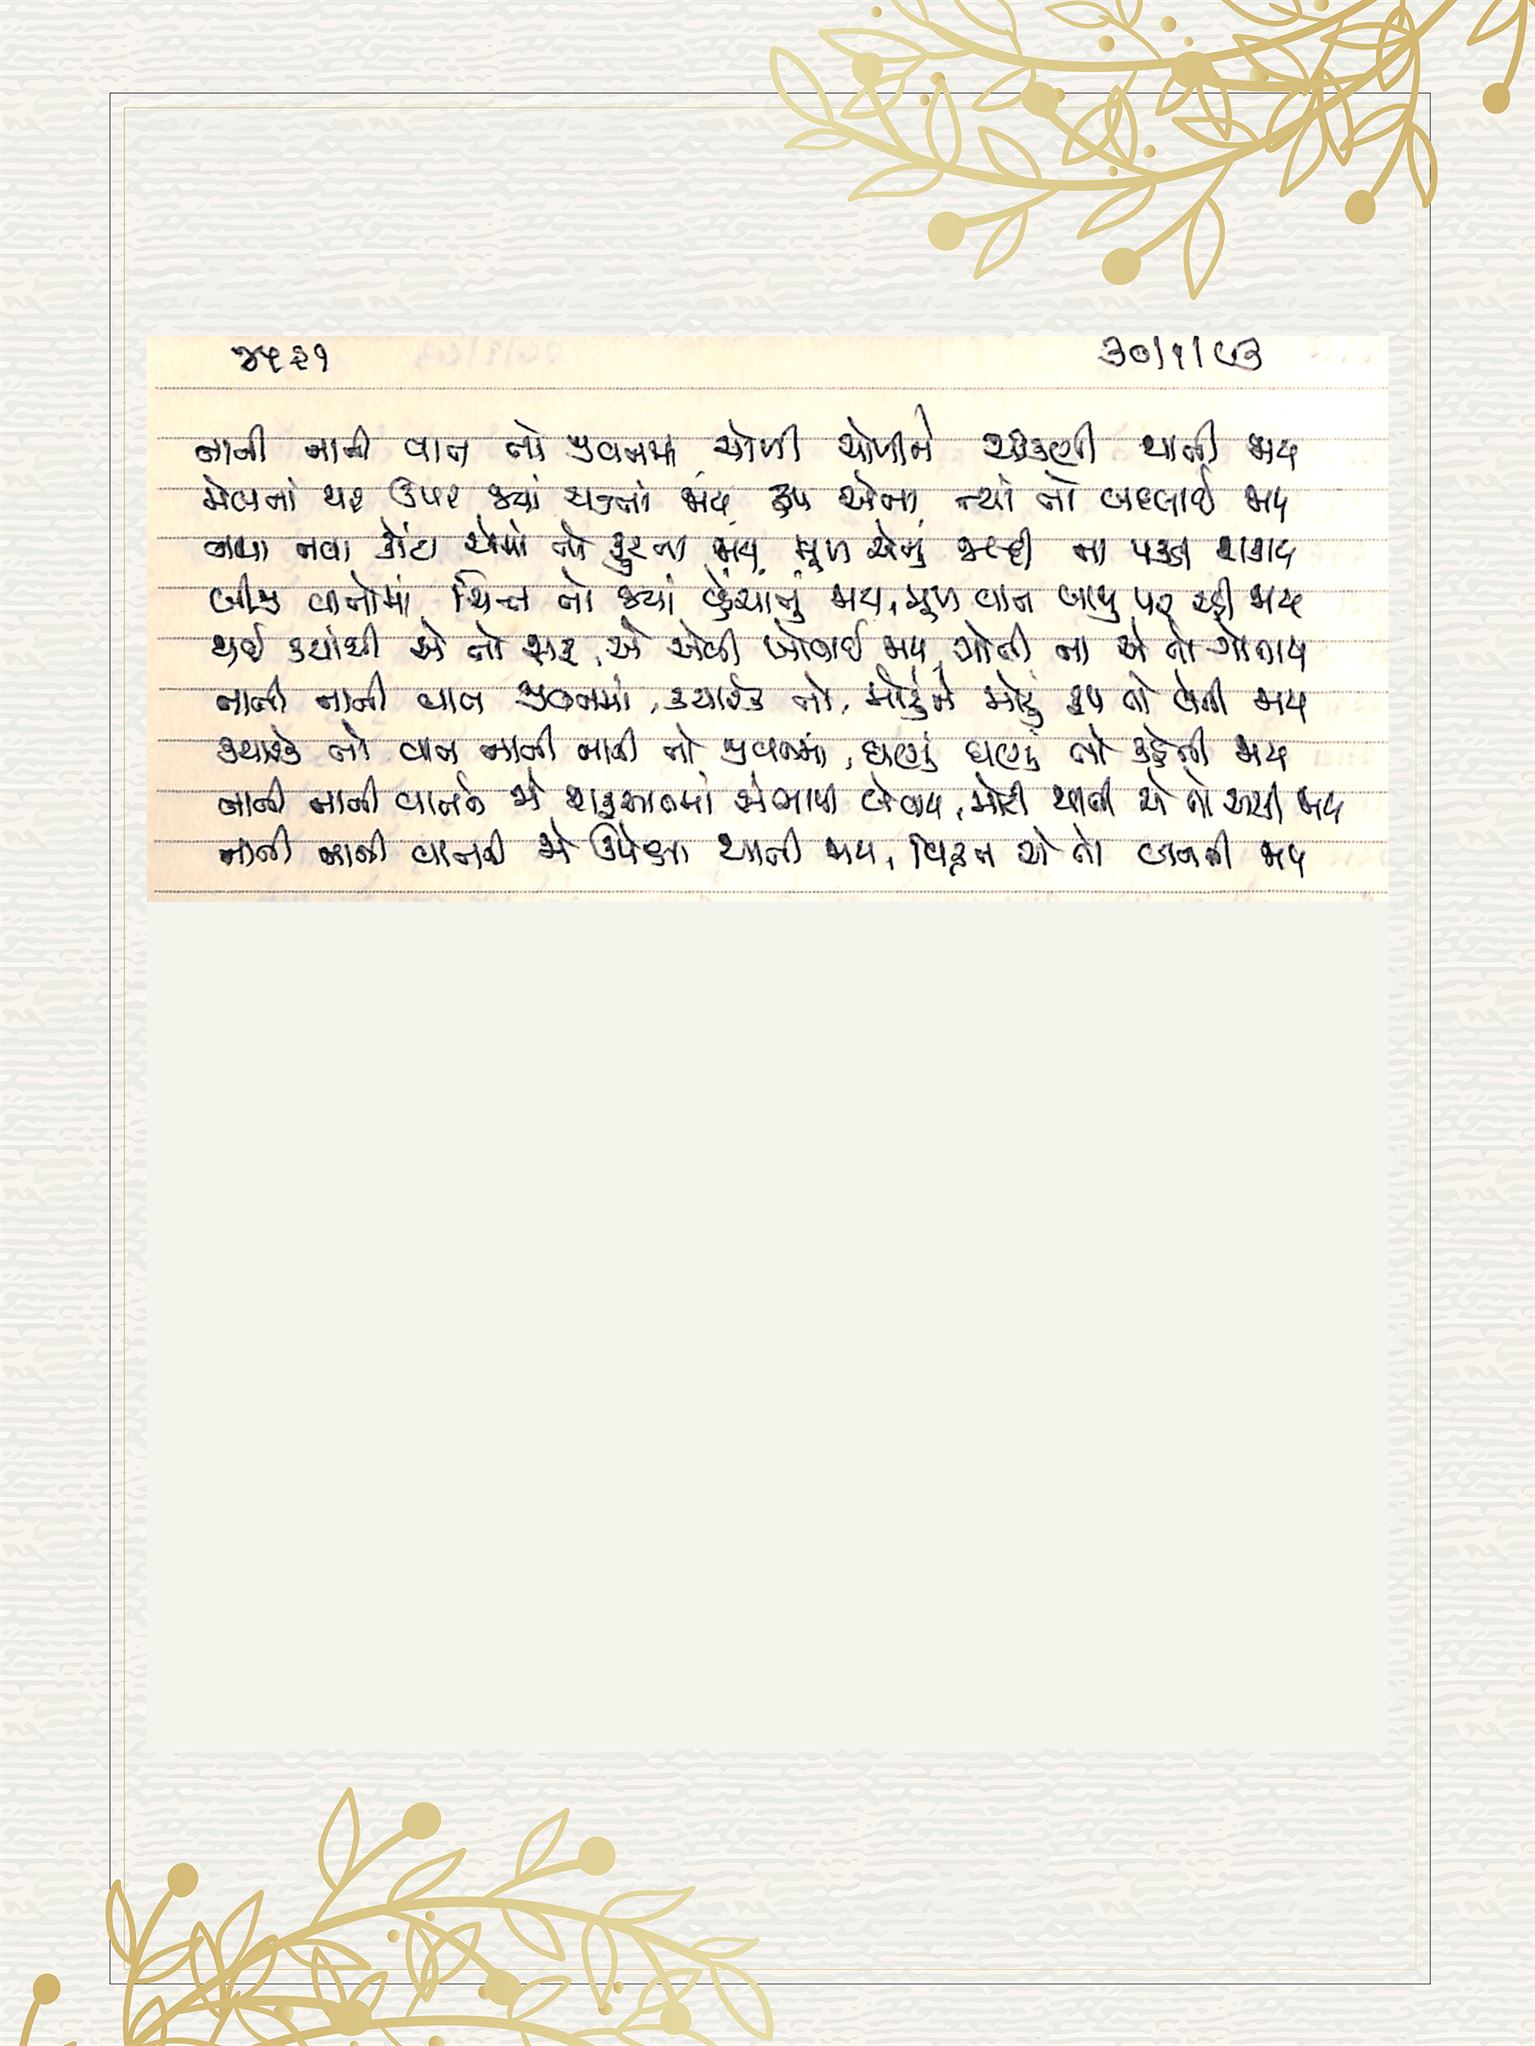 ૪૫૨૧ ૩૦/૧/૯૩
નાની નાની વાત તો જીવનમાં, ચોળી ચોળીને ચીકણી થાતી જાય
મેલનાં થર ઉપર જ્યાં ચડતાં જાય, રૂપ એના ત્યાં તો બદલાઈ જાય
નવા નવા ફાંટા એમાં તો ફૂટતા જાય, મૂળ એનું જલ્દી ના પકડી શકાય
બીજી વાતોમાં ચિત્ત તો જ્યાં ખેંચાતું જાય, મૂળ વાત બાજુ પર રહી જાય
થઈ ક્યાંથી એ તો શરૂ, એ એવી ખોવાઈ જાય, ગોતી ના એ તો ગોતાય
નાની નાની વાત જીવનમાં, ક્યારેક તો, મોટુંને મોટું રૂપ તો લેતી જાય
ક્યારેક તો વાત નાની નાની તો જીવનમાં, ઘણું ઘણું તો કહેતી જાય
નાની નાની વાતને જો શરૂઆતમાં સંભાળી લેવાય, મોટી થાતી એ તો અટકી જાય
નાની નાની વાતની જો ઉપેક્ષા થાતી જાય, વિઘ્ન એ તો બનતી જાય